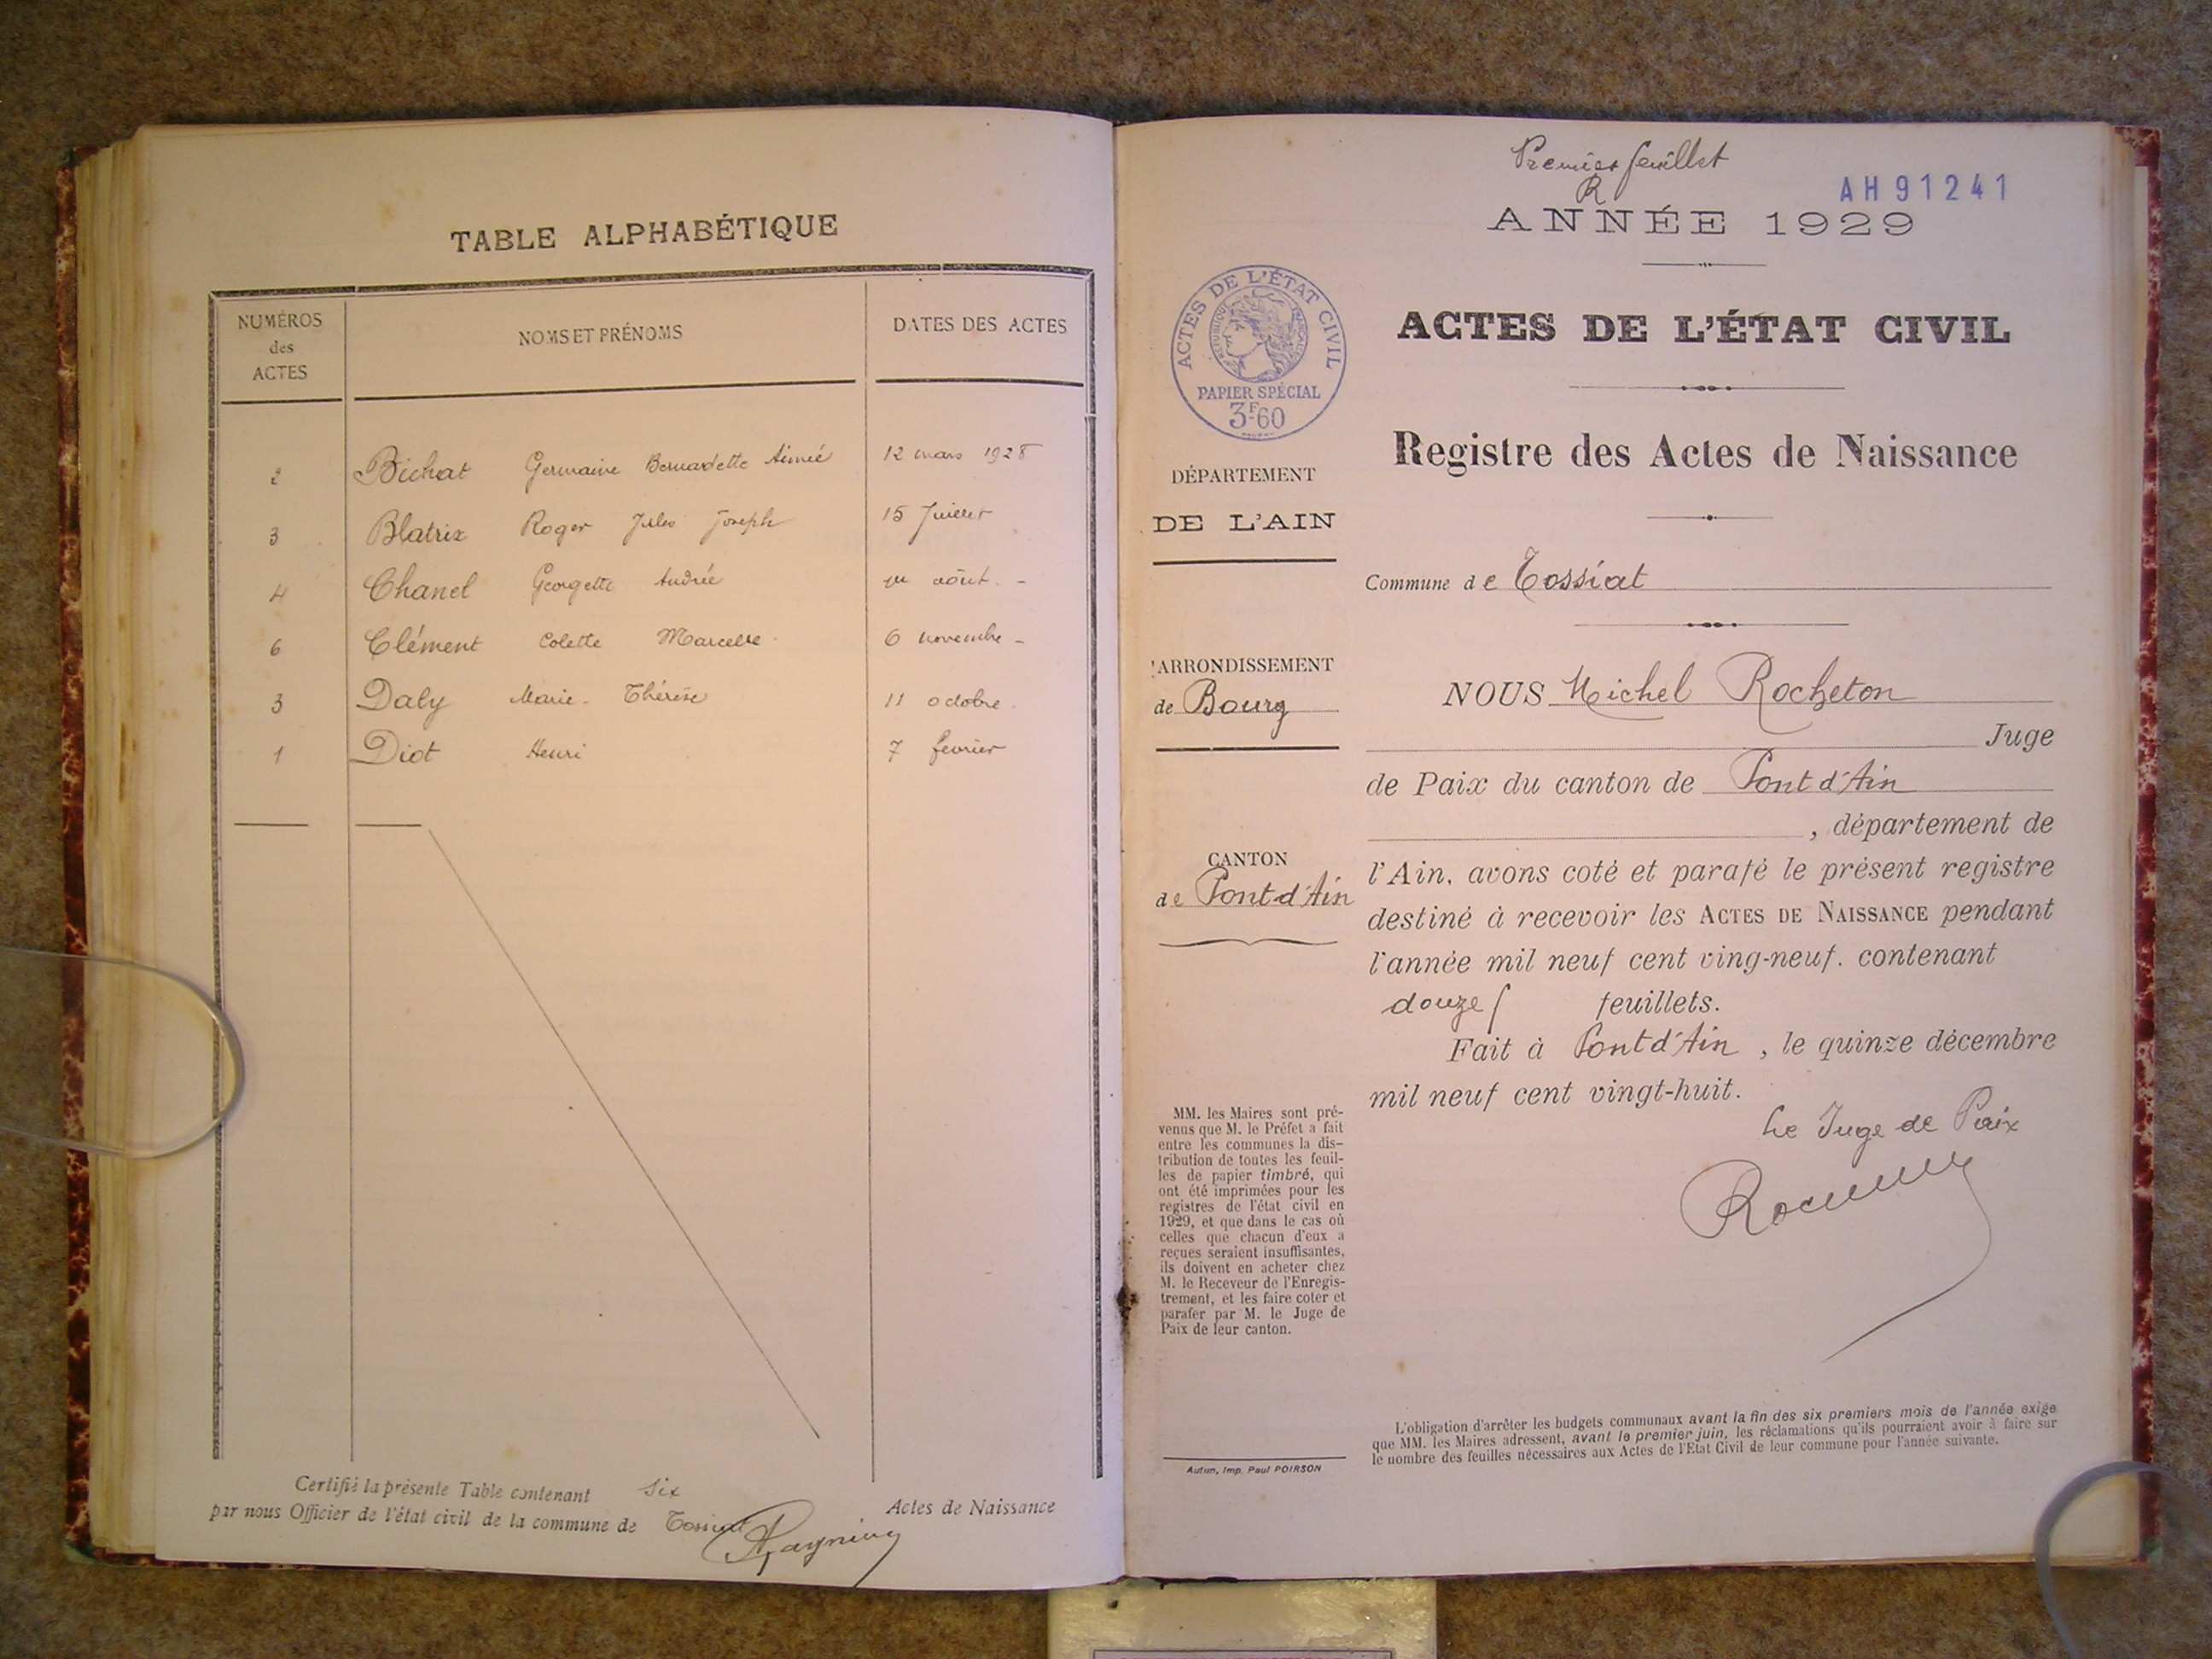 TABLE ALPHABÉTIQUE
NUMÉROS
des
ACTES
NOMS ET PRÉNOMS
DATES DES ACTES
2 Bichat Germaine Bernadette Aimée 12 mars 1928
3 Blatrix Roger Jules Joseph 15 Juillet
4 Chanel Georgette Andrée août. -
6 Clément Colette Marcelle 6 novembre -
3 Daly Marie-Thérèse 11 octobre
1 Diot Henri 7 fevrier
Certifié la présente Table contenant six Actes de Naissance
par nous Officier de l'état civil de la commune de Tossiat
Premier feuillet
R
AH91241
ANNÉE 1929
ACTES DE L'ÉTAT CIVIL
RÉPUBLIQUE FRANÇAISE
PAPIER SPÉCIAL
3F60
ACTES DE L'ÉTAT CIVIL
Registre des Actes de Naissance
DÉPARTEMENT
DE L'AIN
Commune de Tossiat
ARRONDISSEMENT
de Bourg
NOUS Michel Rocheton
Juge
de Paix du canton de Pont d'Ain
, département de
CANTON
de Pont-d'Ain
l'Ain, avons coté et parafé le présent registre
destiné à recevoir les ACTES DE NAISSANCE pendant
l'année mil neuf cent ving-neuf. contenant
douze feuillets.
Fait à Pont d'Ain, le quinze décembre
mil neuf cent vingt-huit.
Le Juge de Paix
MM. les Maires sont pré-
venus que M. le Préfet a fait
entre les communes la dis-
tribution de toutes les feuil-
les de papier timbré, qui
ont été imprimées pour les
registres de l'état civil en
1929, et que dans le cas où
celles que chacun d'eux a
reçues seraient insuffisantes,
ils doivent en acheter chez
M. le Receveur de l'Enregis-
trement, et les faire coter et
parafer par M. le Juge de
Paix de leur canton.
Autun, Imp. Paul POIRSON
L'obligation d'arrêter les budgets communaux avant la fin des six premiers mois de l'année exige
que MM. les Maires adressent, avant le premier juin, les réclamations qu'ils pourraient avoir à faire sur
le nombre des feuilles nécessaires aux Actes de l'Etat Civil de leur commune pour l'année suivante.